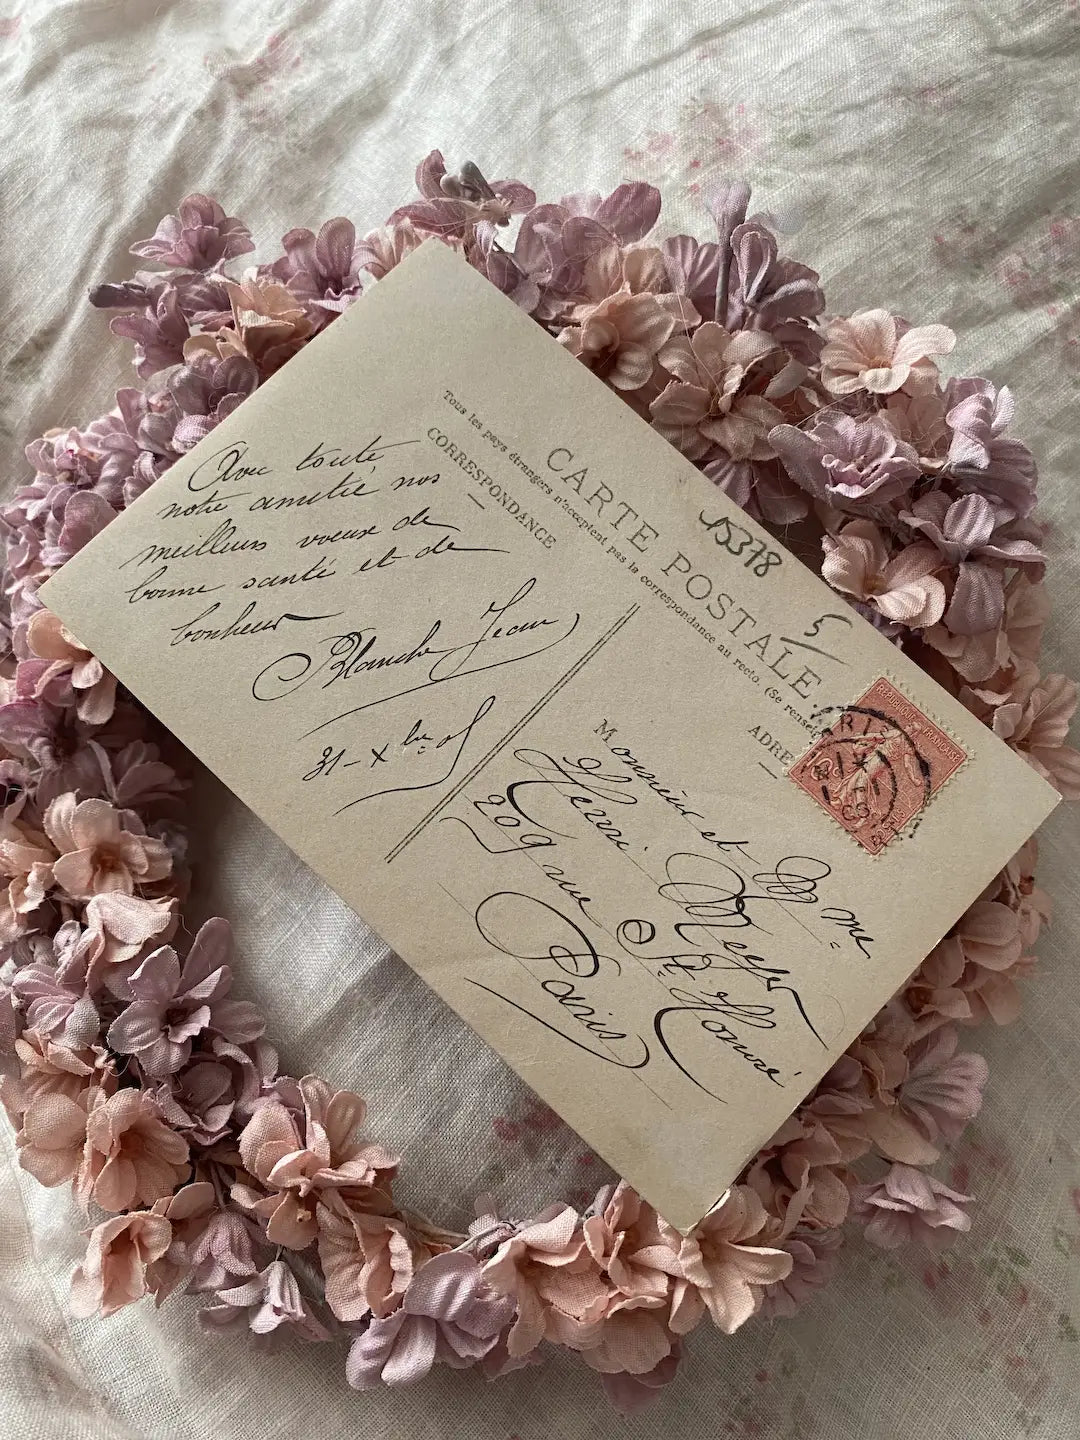 CARTE POSTALE
Tous les pays étrangers n'acceptent pas la correspondance au recto. (Se rensei
CORRESPONDANCE
ADRE
15378
5
RÉPUBLIQUE FRANÇAISE
Avec toute
notre amitié nos
meilleurs voeux de
bonne santé et de
bonheur
Blanche Jean
31-Xbre 05
Monsieur et Mme
Henri Meyer
209 rue St. Honoré
Paris